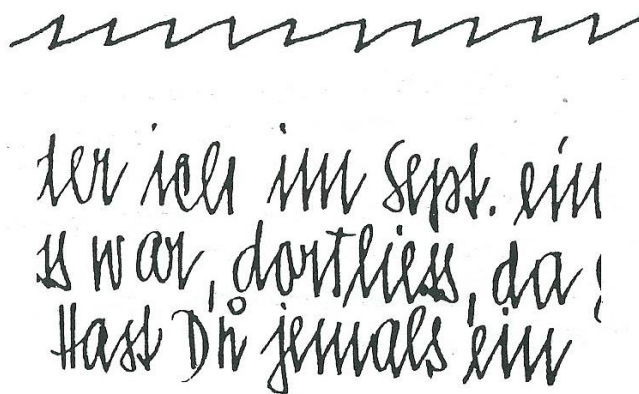 ter ich im Sept. ein
ss war, dortliess, da
Hast Du jemals ein